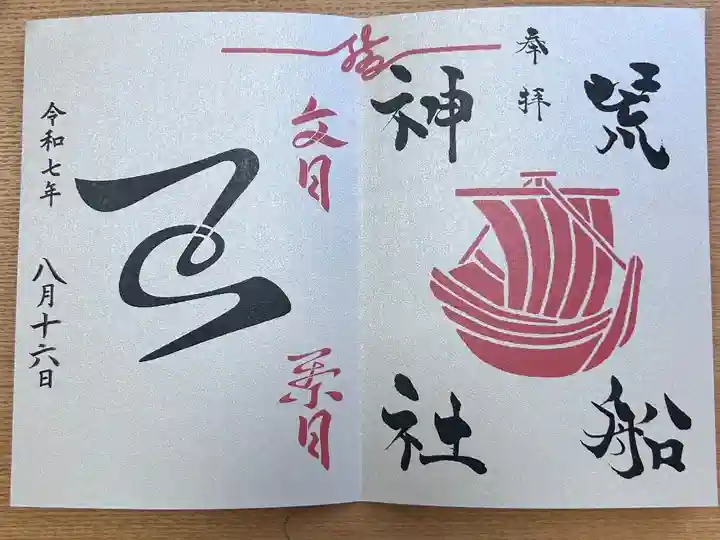 荒船
奉拝
神社
文月
葉月
令和七年 八月十六日